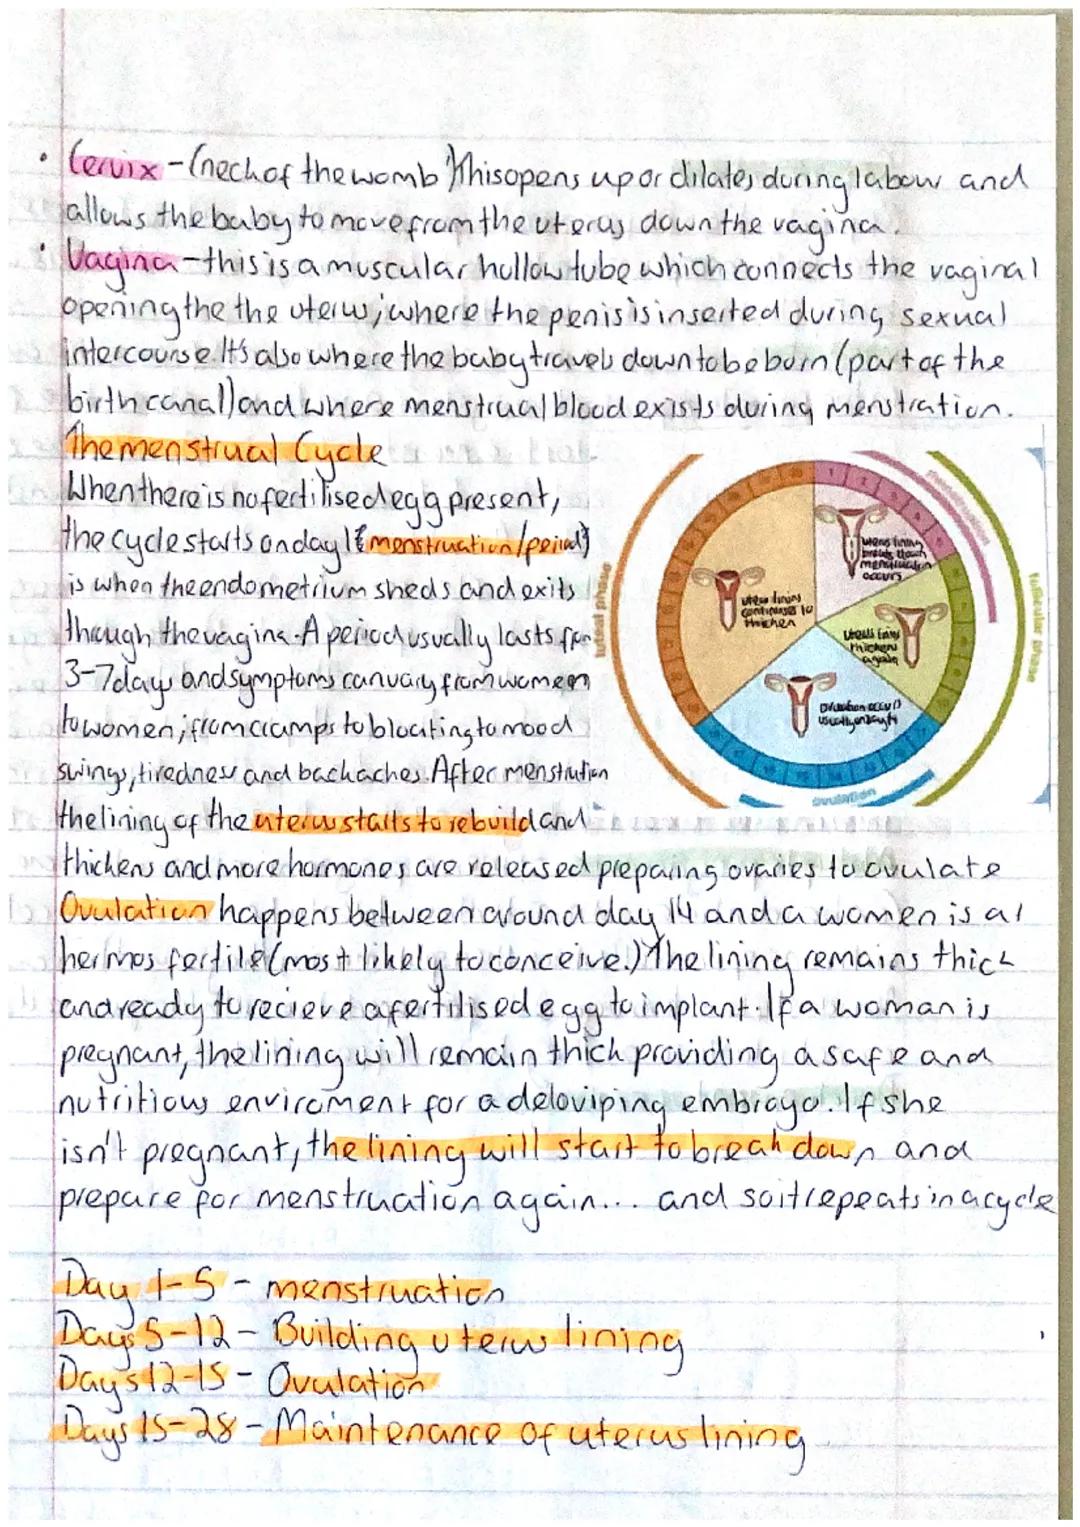 • Cervix - (neck of the womb) This opens up or dilates during labour and
allows the baby to move from the uterus down the vagina.
• Vagina - this is a muscular hollow tube which connects the vaginal
opening the the uterus; where the penis is inserted during sexual
intercourse. It's also where the baby travels down to be born (part of the
birth canal) and where menstrual blood exists during menstration.
The menstrual Cycle
When there is no fertilised egg present,
the cycle starts on day 1 (menstruation/period)
is when the endometrium sheds and exits
through the vagina. A period usually lasts from
3-7 days and symptoms can vary from women
to women; from cramps to bloating to mood
swings, tiredness and backaches. After menstrution
the lining of the uterus starts to rebuild and
thickens and more hormones are released preparing ovaries to ovulate
Ovulation happens between around day 14 and a women is at
her mos fertile (most likely to conceive.) The lining remains thick
and ready to recieve a fertilised egg to implant. If a woman is
pregnant, the lining will remain thick providing a safe and
nutritious enviroment for a deloviping embrayo. If she
isn't pregnant, the lining will start to break down and
prepare for menstruation again... and so it repeats in a cycle
Day 1-5 - menstruation
Days 5-12 - Building uterus lining
Days 12-15 - Ovulation
Days 15-28 - Maintenance of uterus lining
menstruation
follicular phase
luteal phase
ovulation
uterus lining
breaks down
menstruation
occurs
uterus lining
continues to
thicken
thickens
again
Ovulation occurs
usually on day 14